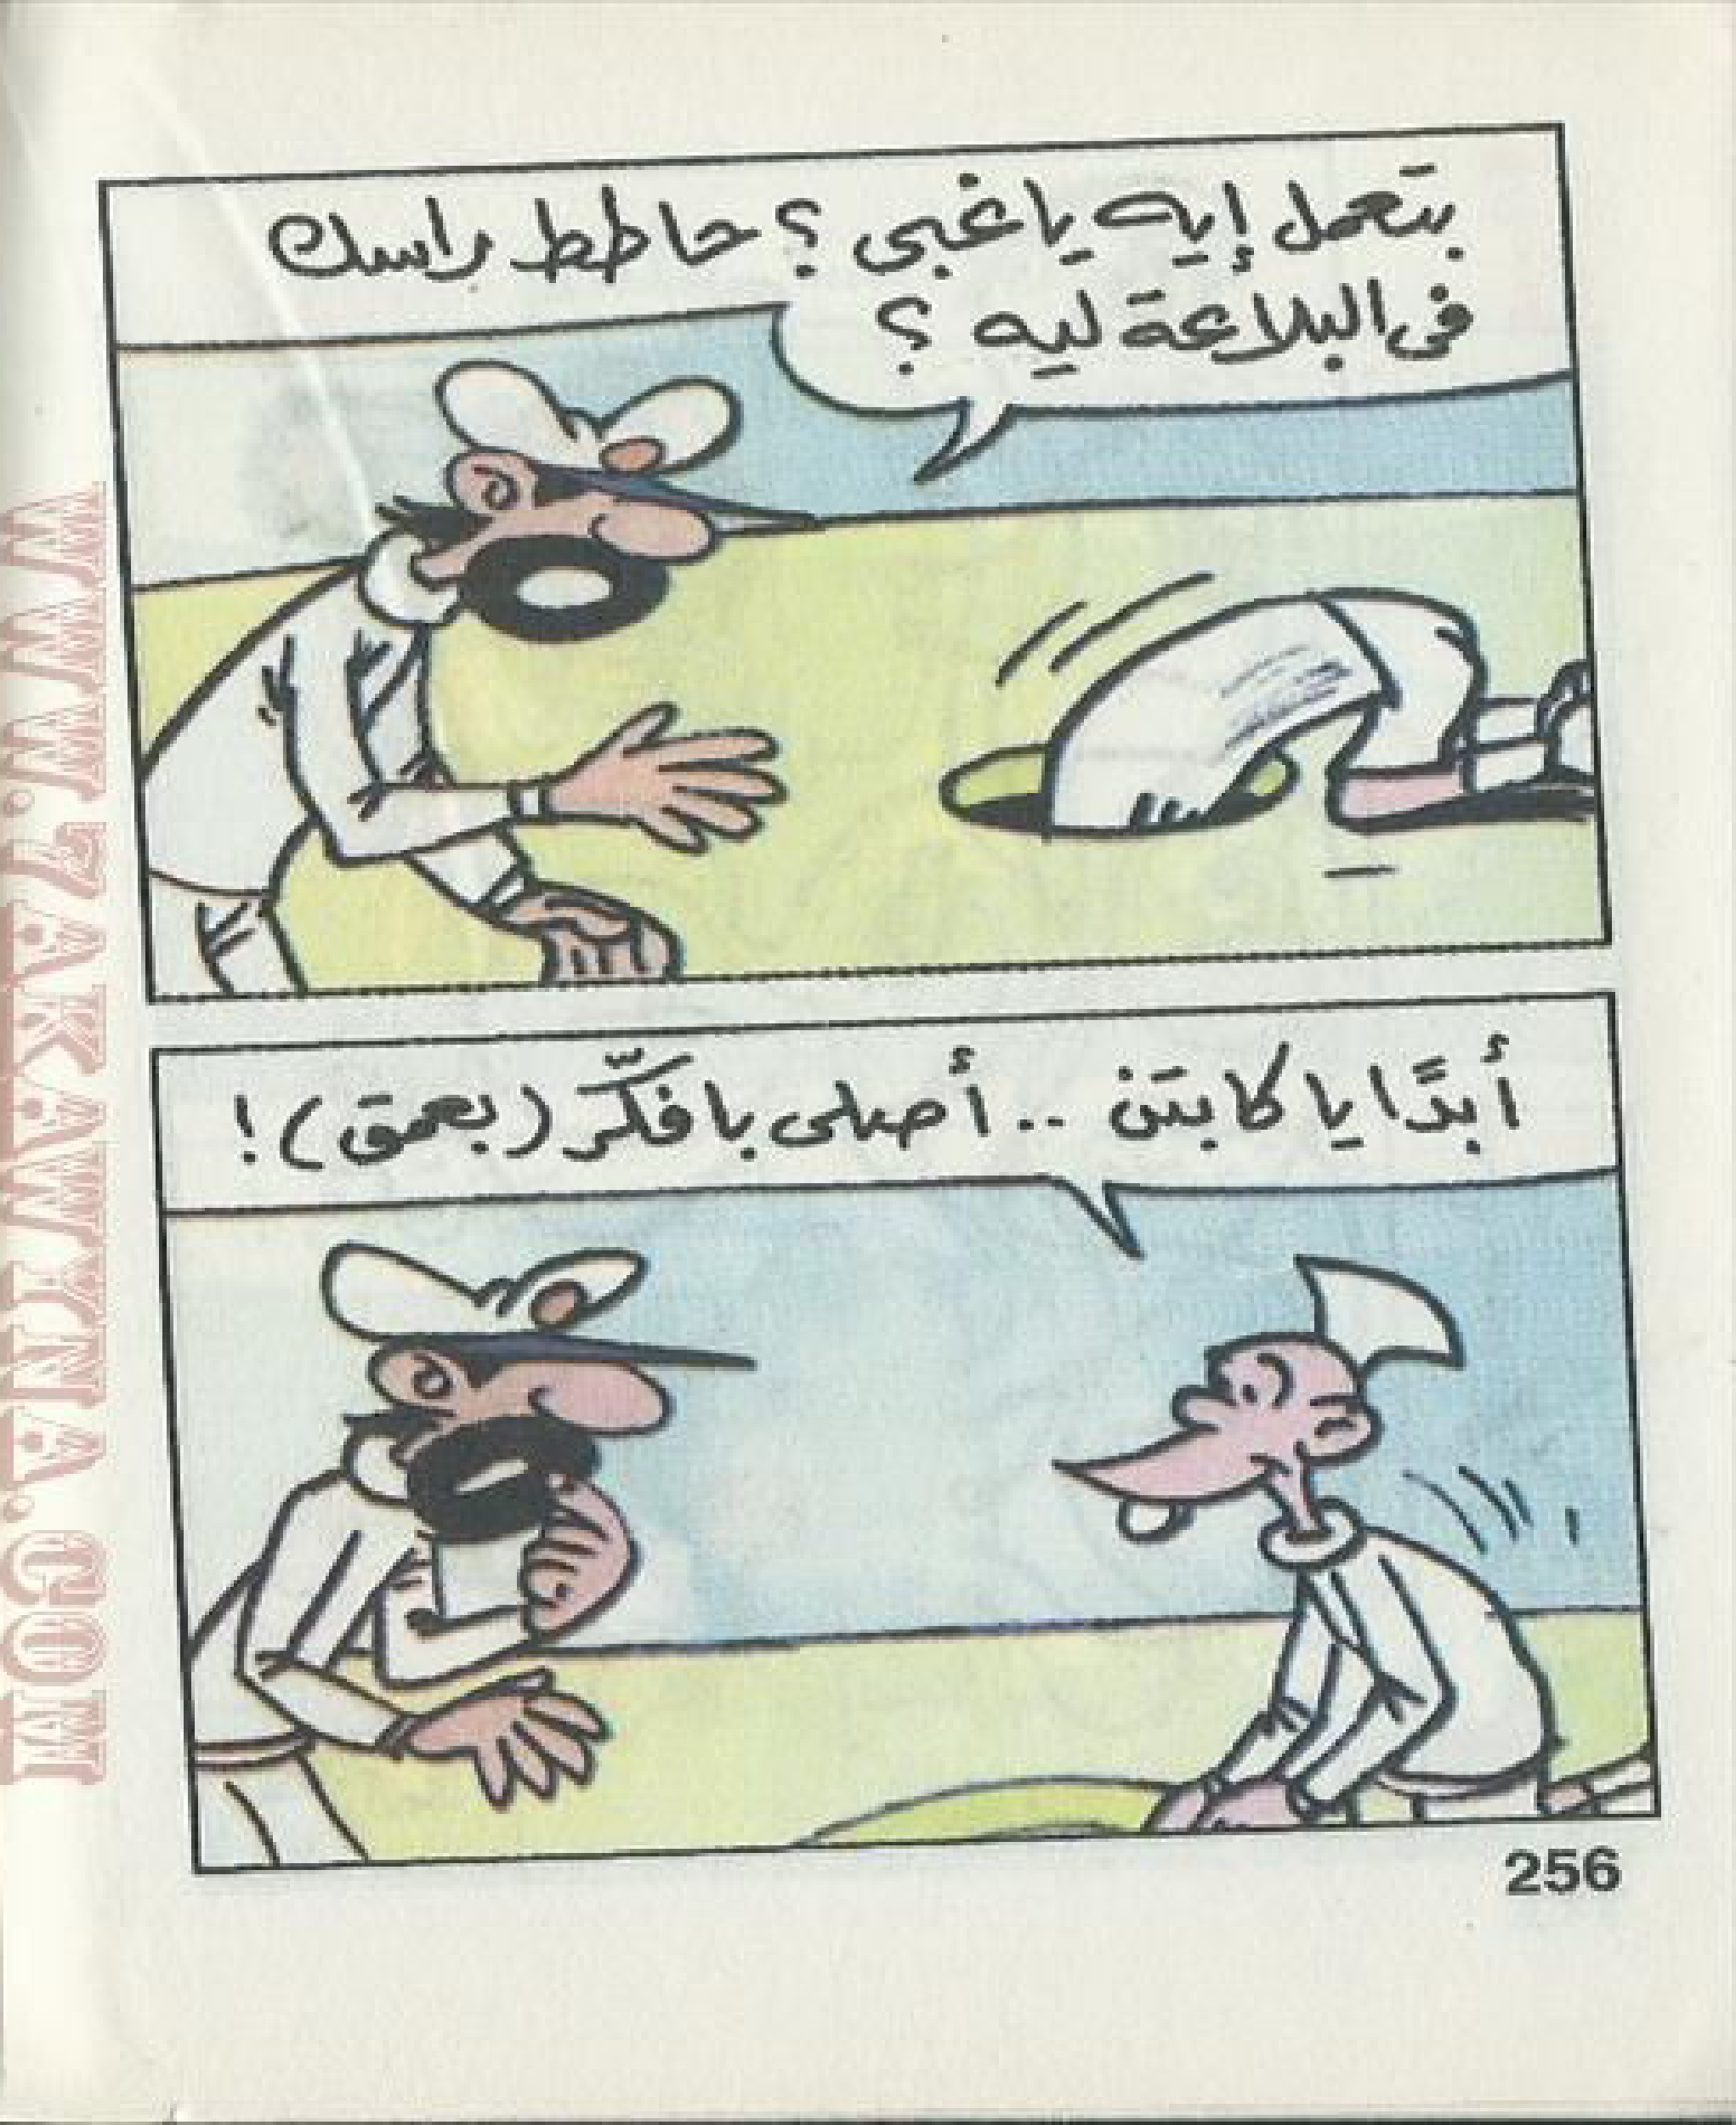 بتعمل إيه يا غبى؟ حاطط راسك
فى البلاعة ليه؟
أبدًا يا كابتن .. أصلى بافكّر (بعمق)!
256
WWW.7AKAWYNA.COM